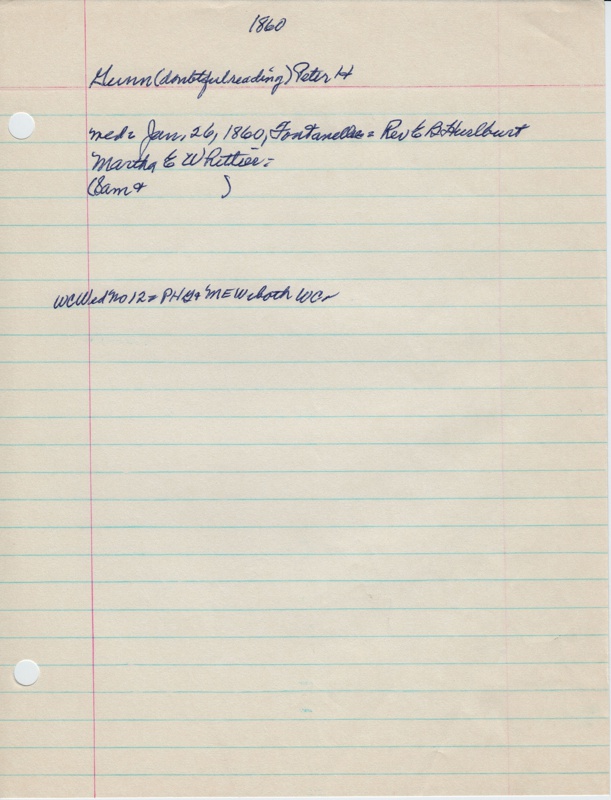 1860
Gunn (doubtful reading) Peter H
med = Jan, 26, 1860, Fontanelle = Rev E B Hurlburt
Martha E Whittier =
(Sam &          )
WC Wed No 12 = PHG & MEW both WC